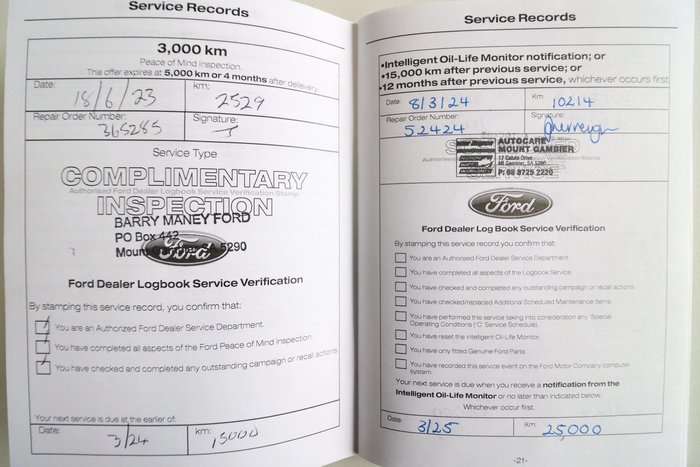 Service Records
3,000 km
Peace of Mind Inspection.
This offer expires at 5,000 km or 4 months after delivery
Date: 18/6/23 km: 2529
Repair Order Number: 365285 Signature:
Service Type
COMPLIMENTARY
Authorised Ford Dealer Logbook Service Verification Stamp
INSPECTION
BARRY MANEY FORD
PO Box 442
Moun 5290
Ford
Ford Dealer Logbook Service Verification
By stamping this service record, you confirm that:
You are an Authorized Ford Dealer Service Department.
You have completed all aspects of the Ford Peace of Mind Inspection.
You have checked and completed any outstanding campaign or recall actions.
Your next service is due at the earlier of:
Date: 3/24 km: 15000
Service Records
•Intelligent Oil-Life Monitor notification; or
•15,000 km after previous service; or
•12 months after previous service, whichever occurs first
Date: 8/3/24 Km: 10214
Repair Order Number: 52424 Signature:
AUTOCARE
MOUNT GAMBIER
Mt Gambier, SA 5290
P: 08 8725 2220
Ford
Ford Dealer Log Book Service Verification
By stamping this service record you confirm that:
You are an Authorised Ford Dealer Service Department.
You have completed all aspects of the Logbook Service.
You have checked and completed any outstanding campaign or recall actions
You have checked/replaced Additional Scheduled Maintenance Items.
You have performed this service taking into consideration any 'Special
Operating Conditions ('C' Service Schedule)
You have reset the Intelligent Oil-Life Monitor.
You have only fitted Genuine Ford Parts
You have recorded this service event on the Ford Motor Company computer
system.
Your next service is due when you receive a notification from the
Intelligent Oil-Life Monitor or no later than indicated below.
Whichever occur first.
Date: 3/25 Km: 25,000
-21-